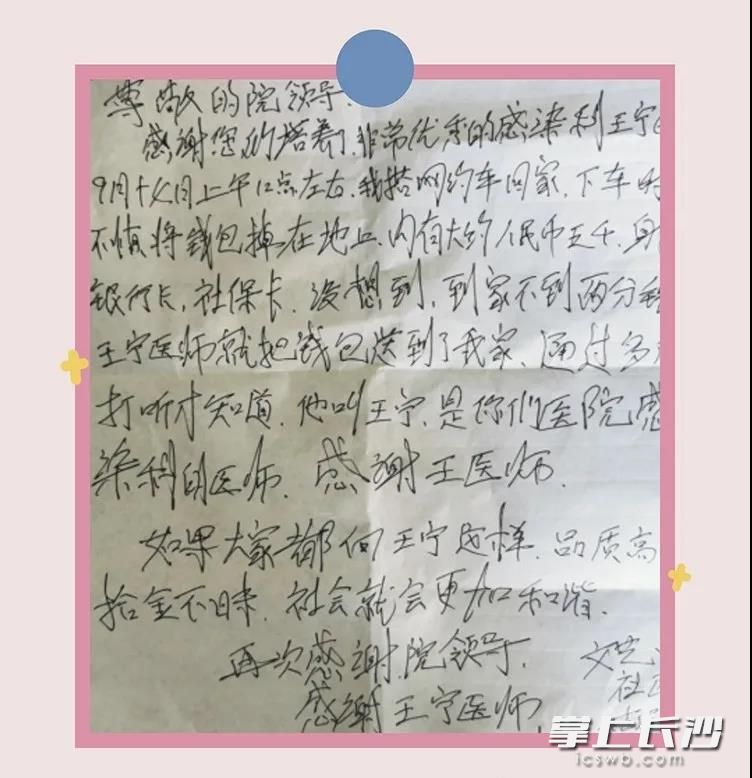 尊敬的院领导.
感谢您们培养了非常优秀的感染科王宁
9月十六日上午12点左右,我搭网约车回家.下车时
不慎将钱包掉在地上.内有大约人民币五千.身
银行卡,社保卡.没想到,到家不到两分钟
王宁医师就把钱包送到了我家.通过多
打听才知道.他叫王宁.是你们医院感
染科的医师.感谢王医师.
如果大家都向王宁这样.品质高
拾金不昧.社会就会更加和谐.
再次感谢院领导.
感谢王宁医师.
文艺
社区
掌上长沙
icswb.com